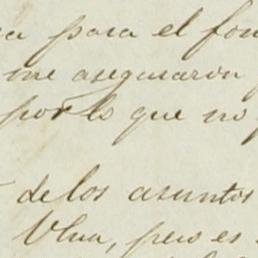 para el
me aseguraron
por lo que no
de los asuntos
Uhua, pero es